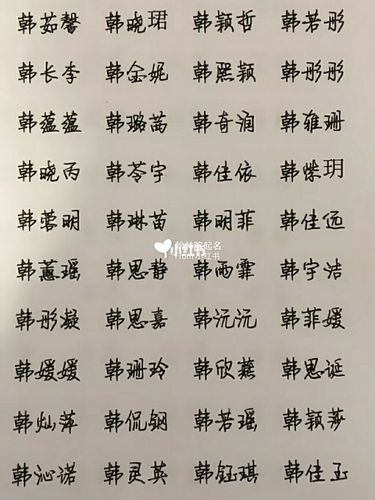 韩茹馨 韩晓珺 韩颖哲 韩若彤
韩长李 韩金妮 韩熙颖 韩彤彤
韩蕴蕴 韩璐茜 韩奇润 韩雅珊
韩晓丙 韩苓宇 韩佳依 韩紫玥
韩蓉明 韩琳苗 韩明菲 韩佳远
小红书
韩蕙瑶 韩思静 韩雨霏 韩宇洁
韩彤凝 韩思嘉 韩沅沅 韩菲媛
韩媛媛 韩珊玲 韩欣燕 韩思诞
韩灿萍 韩侃钢 韩若瑶 韩颖莎
韩沁诺 韩灵英 韩钰琪 韩佳玉